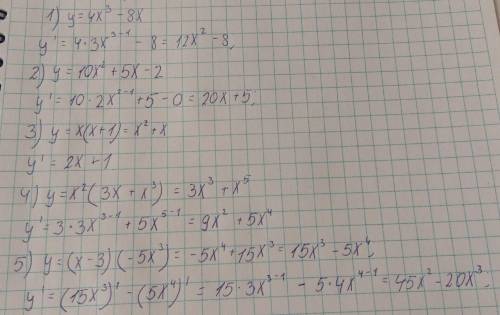 1) y=4x³-8x
y'=4·3x³⁻¹-8=12x²-8;
2) y=10x²+5x-2
y'=10·2x²⁻¹+5-0=20x+5;
3) y=x(x+1)=x²+x
y'=2x+1
4) y=x²(3x+x³)=3x³+x⁵
y'=3·3x³⁻¹+5x⁵⁻¹=9x²+5x⁴
5) y=(x-3)(-5x³)=-5x⁴+15x³=15x³-5x⁴;
y'=(15x³)'-(5x⁴)'=15·3x³⁻¹-5·4x⁴⁻¹=45x²-20x³;